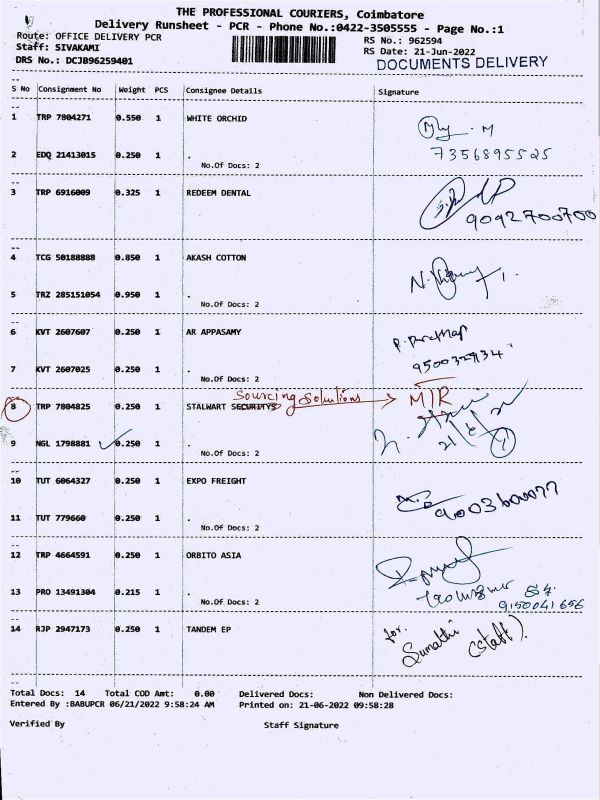 THE PROFESSIONAL COURIERS, Coimbatore
Delivery Runsheet - PCR - Phone No.:0422-3505555 - Page No.:1
Route: OFFICE DELIVERY PCR
RS No.: 962594
Staff: SIVAKAMI
RS Date: 21-Jun-2022
DRS No.: DCJ096259401
DOCUMENTS DELIVERY
S No Consignment No Weight PCS Consignee Details Signature
1 TRP 7804271 0.550 1 WHITE ORCHID
2 EDQ 21413015 0.250 1 . 7356895525
No.Of Docs: 2
3 TRP 6916009 0.325 1 REDEEM DENTAL
9092700700
4 TCG 50188888 0.850 1 AKASH COTTON
5 TRZ 285151054 0.950 1 .
No.Of Docs: 2
6 KVT 2607607 0.250 1 AR APPASAMY
7 KVT 2607025 0.250 1 .
No.Of Docs: 2
Sourcing Solutions M/R
8 TRP 7804825 0.250 1 STALWART SECURITYS
9 NGL 1798881 0.250 1 .
No.Of Docs: 2
10 TUT 6064327 0.250 1 EXPO FREIGHT
9003600077
11 TUT 779660 0.250 1 .
No.Of Docs: 2
12 TRP 4664591 0.250 1 ORBITO ASIA
13 PRO 13491304 0.215 1 .
No.Of Docs: 2 9150041656
14 RJP 2947173 0.250 1 TANDEM EP
for. Sumathi (staff).
Total Docs: 14 Total COD Amt: 0.00 Delivered Docs: Non Delivered Docs:
Entered By :BABUPCR 06/21/2022 9:58:24 AM Printed on: 21-06-2022 09:58:28
Verified By Staff Signature